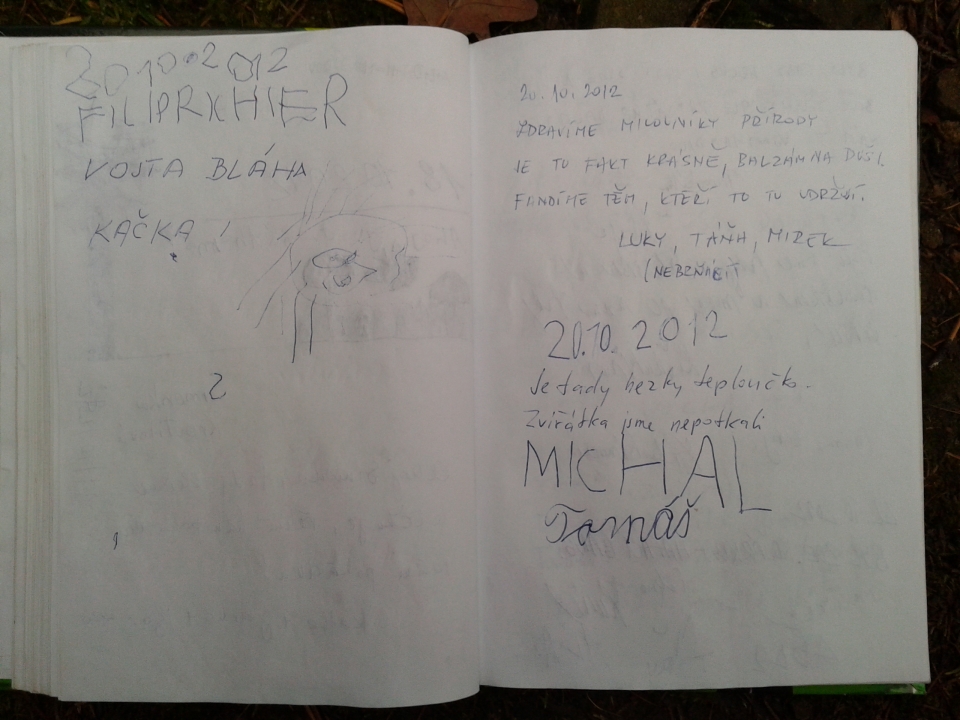 2010.2012
FILIPRKHIER
VOJTA BLÁHA
KAČKA !
2
20.10.2012
ZDRAVÍME MILOVNÍKY PŘÍRODY
JE TU FAKT KRÁSNĚ, BALZÁM NA DUŠI.
FANDÍME TĚM, KTEŘÍ TO TU UDRŽUJÍ.
LUKY, TÁŇA, MIREK
20.10.2012
Je tady hezky teploučko.
Zvířátka jsme nepotkali
MICHAL
Tomáš